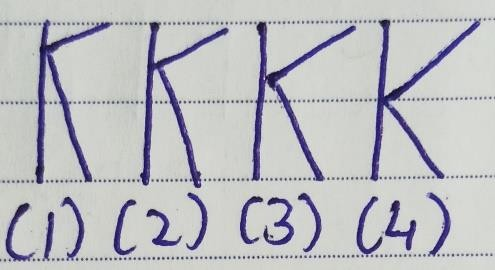 K K K K
(1) (2) (3) (4)